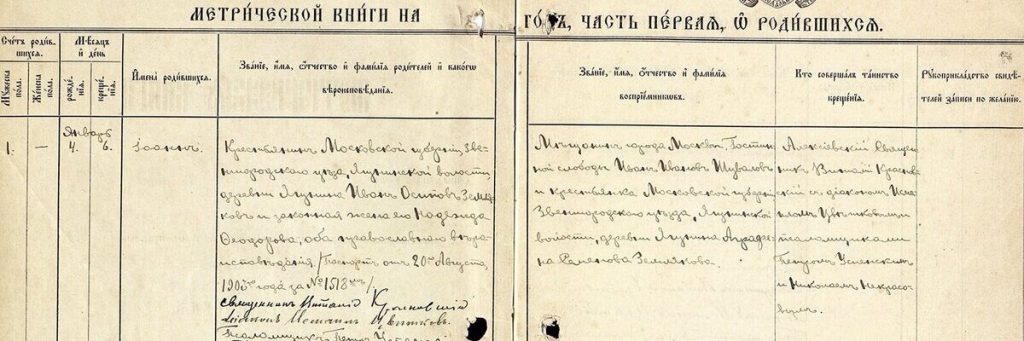 МЕТРИ́ЧЕСКОЙ КНИ́ГИ НА ГОДЪ, ЧАСТЬ ПЕ́РВАЯ, Ѡ РОДИ́ВШИХСѦ.
Счетъ родив-
шихся.
Мѣсяцъ
и день
Мужеска
пола.
Женска
пола.
рожде-
нія.
креще-
нія.
Имена родившихся.
Званіе, имя, отчество и фамилія родителей и какого
вѣроисповѣданія.
Званіе, имя, отчество и фамилія
воспріемниковъ.
Кто совершалъ таинство
крещенія.
Рукоприкладство свидѣ-
телей записи по желанію.
Январь
1. — 4. 6.
Іоаннъ.
Крестьянинъ Московской губерніи, Зве-
нигородскаго уѣзда, Ягунинской волости
деревни Ягунина Иванъ Осиповъ Земля-
ковъ и законная жена его Надежда
Ѳеодорова, оба православнаго вѣро-
исповѣданія. /Паспортъ отъ 20го Августа
1903го года за №1518мъ/
Священникъ Виталій
Діаконъ Цвѣтковъ.
Псаломщикъ Петръ
Мѣщанинъ города Москвы, Гостин
ной слободы Иванъ Ивановъ Шуваловъ
и крестьянка Московской губерніи
Звенигородскаго уѣзда, Ягунинской
волости, деревни Ягунина Аграфе-
на Землякова.
Алексіевскій Священ-
никъ Виталій
съ діакономъ
Цвѣтковымъ и
псаломщиками
Петромъ Успенскимъ
и Николаемъ Некрасо-
вымъ.